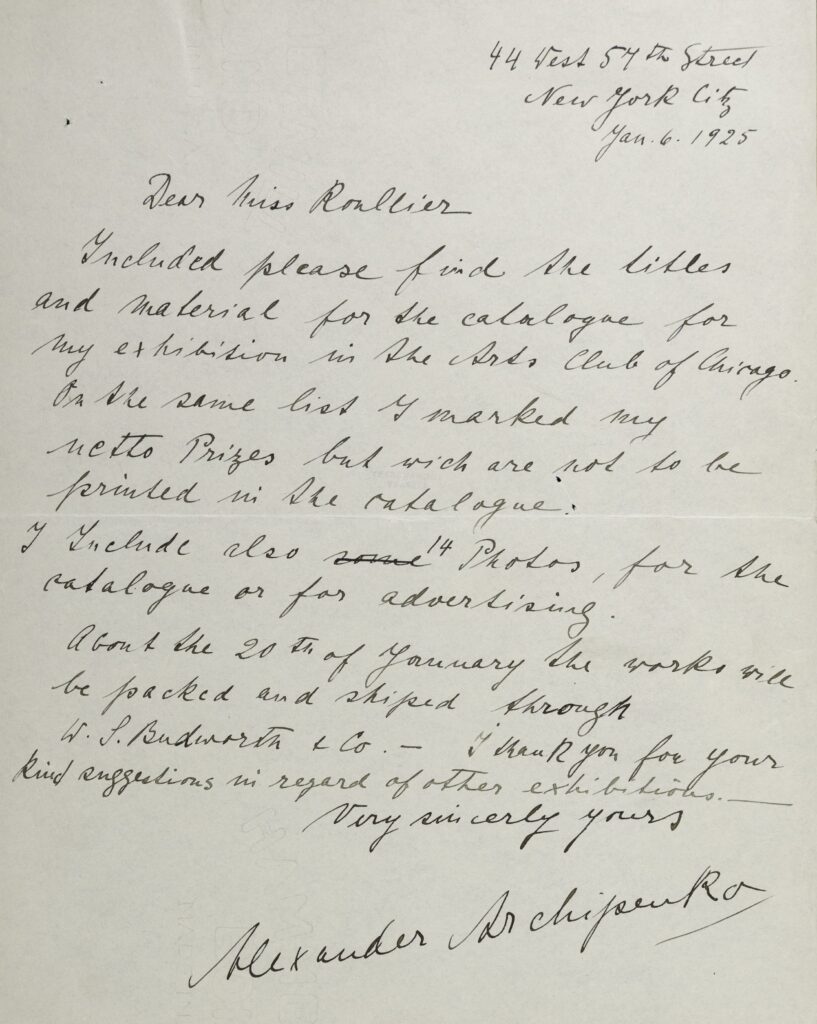 44 West 57th Street
New York City
Jan. 6. 1925
Dear Miss Roullier
Included please find the titles
and material for the catalogue for
my exhibition in the Arts Club of Chicago.
On the same list I marked my
netto Prizes but wich are not to be
printed in the catalogue.
I Include also some 14 Photos, for the
catalogue or for advertising.
About the 20th of Jannuary the works will
be packed and shiped through
W. S. Budworth & Co. — I thank you for your
kind suggestions in regard of other exhibitions. —
Very sincerly yours
Alexander Archipenko